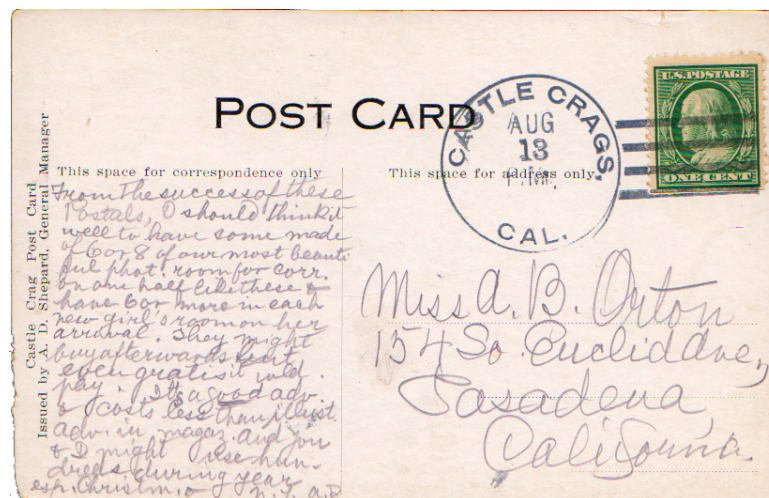 POST CARD
Castle Crag Post Card
Issued by A. D. Shepard, General Manager
This space for correspondence only
This space for address only.
CASTLE CRAGS,
AUG
13
P.M.
CAL.
U.S. POSTAGE
ONE CENT
From the success of these
Postals, I should think it
well to have some made
of 6 or 8 of our most beauti
ful phot. room for corr.
on one half like these &
have 6 or more in each
new girl's room on her
arrival. They might
buy afterwards but
even gratis it wld.
pay. It's a good adv.
& costs less than illust.
adv. in magaz. and you
& I might use hun-
dreds during year
esp. Christm.
Miss A. B. Orton
154 So. Euclid Ave,
Pasadena
California.